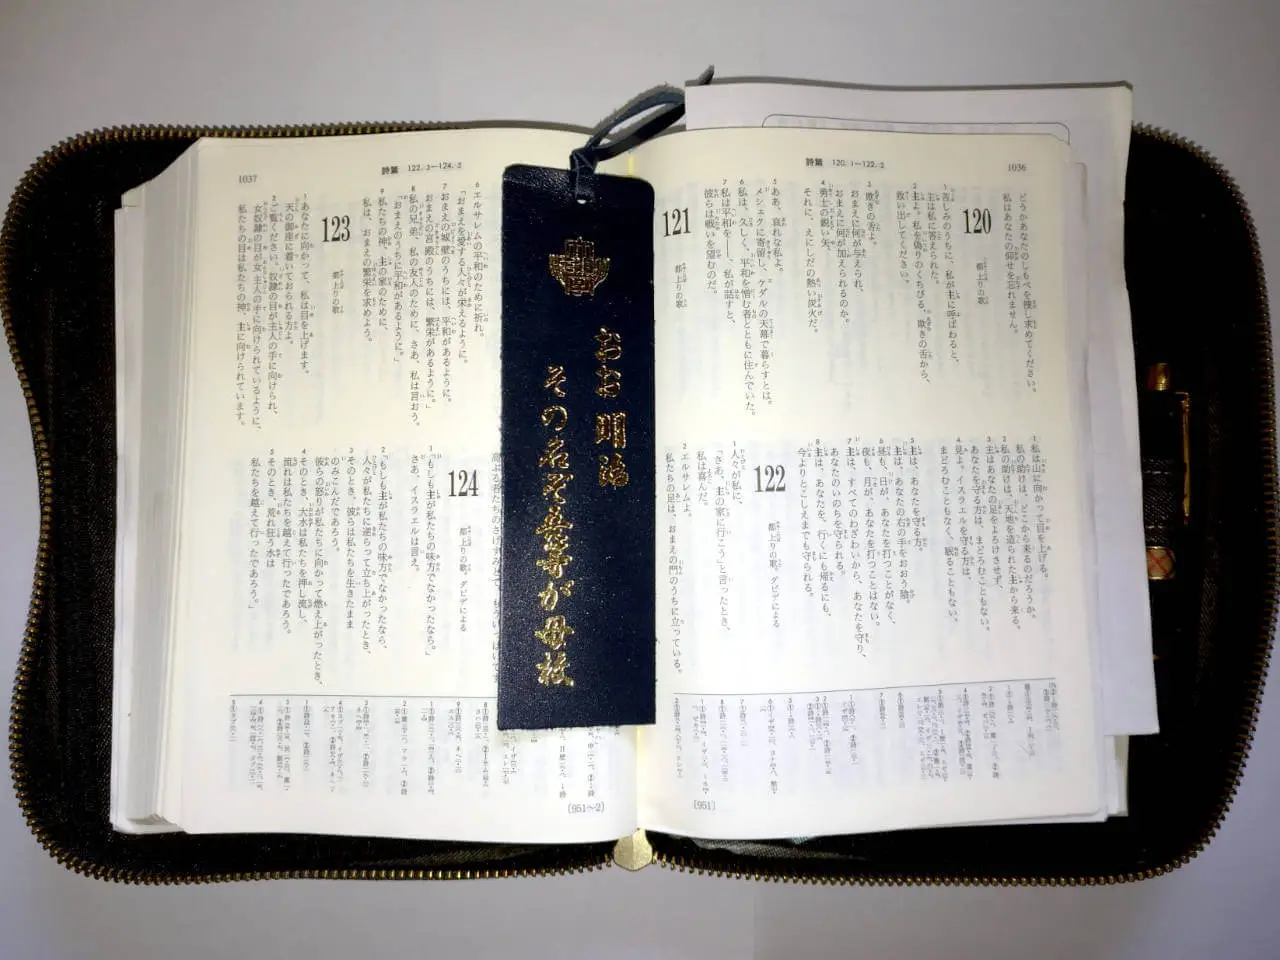 詩篇 120.1―122.2
1036
どうかあなたのしもべを捜し求めてください。
私はあなたの仰せを忘れません。
120
都上りの歌
1 苦しみのうちに、私が主に呼ばわると、
主は私に答えられた。
2 主よ。私を偽りのくちびる、欺きの舌から、
救い出してください。
3 欺きの舌よ。
おまえに何が与えられ、
おまえに何が加えられるのか。
4 勇士の鋭い矢、
それに、えにしだの熱い炭火だ。
5 ああ、哀れな私よ。
メシェクに寄留し、ケダルの天幕で暮らすとは。
6 私は、久しく、平和を憎む者とともに住んでいた。
7 私は平和を――、私が話すと、
彼らは戦いを望むのだ。
121
都上りの歌
1 私は山に向かって目を上げる。
私の助けは、どこから来るのだろうか。
2 私の助けは、天地を造られた主から来る。
3 主はあなたの足をよろけさせず、
あなたを守る方は、まどろむこともない。
4 見よ。イスラエルを守る方は、
まどろむこともなく、眠ることもない。
5 主は、あなたを守る方。
主は、あなたの右の手をおおう陰。
6 昼も、日が、あなたを打つことがなく、
夜も、月が、あなたを打つことはない。
7 主は、すべてのわざわいから、あなたを守り、
あなたのいのちを守られる。
8 主は、あなたを、行くにも帰るにも、
今よりとこしえまでも守られる。
122
都上りの歌。ダビデによる
1 人々が私に、
「さあ、主の家に行こう」と言ったとき、
私は喜んだ。
2 エルサレムよ。
私たちの足は、おまえの門のうちに立っている。
[951]
おお明治
その名ぞ吾等が母校
詩篇 122.3―124.5
1037
6 エルサレムの平和のために祈れ。
「おまえを愛する人々が栄えるように。
7 おまえの城壁のうちには、平和があるように。
おまえの宮殿のうちには、繁栄があるように。」
8 私の兄弟、私の友人のために、さあ、私は言おう。
「おまえのうちに平和があるように。」
9 私たちの神、主の家のために、
私は、おまえの繁栄を求めよう。
123
都上りの歌
1 あなたに向かって、私は目を上げます。
天の御座に着いておられる方よ。
2 ご覧ください。奴隷の目が主人の手に向けられ、
女奴隷の目が女主人の手に向けられているように、
私たちの目は私たちの神、主に向けられています。
124
都上りの歌。ダビデによる
1 「もしも主が私たちの味方でなかったなら。」
さあ、イスラエルは言え。
2 「もしも主が私たちの味方でなかったなら、
人々が私たちに逆らって立ち上がったとき、
3 そのとき、彼らは私たちを生きたまま
のみこんだであろう。
彼らの怒りが私たちに向かって燃え上がったとき、
4 そのとき、大水は私たちを押し流し、
流れは私たちを越えて行ったであろう。
5 そのとき、荒れ狂う水は
私たちを越えて行ったであろう。」
[951~2]